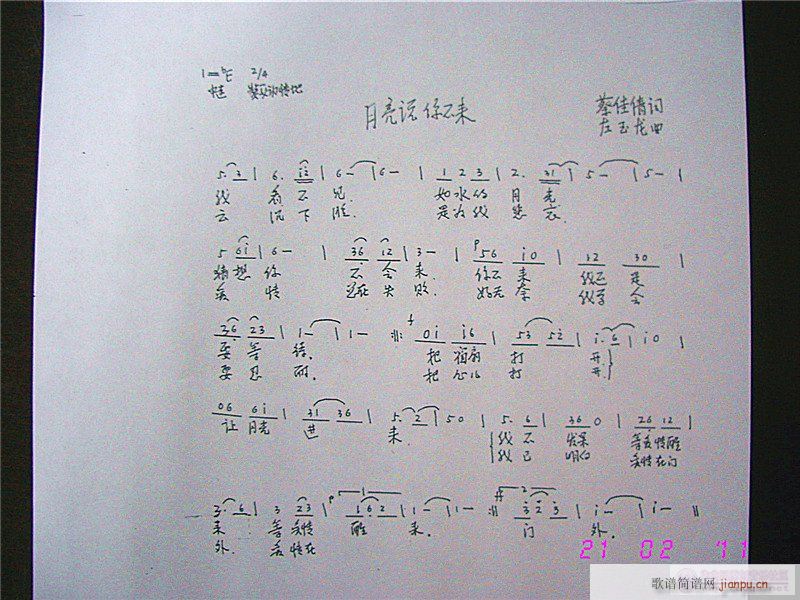 1=♭E 2/4
中速
月亮说你不来
蔡佳倩词
左玉龙曲
5. 3 | 6. i2 | 6 - | 6 - | 1 2 3 | 2. 31 | 5 - | 5 - |
我 看不见. 如水的月光
云沉下脸. 是为我悲哀.
5 6i | 6 - | 36 12 | 3 - | p 56 i0 | 12 30 |
猜想你 不会来. 你不来 我已是
爱情 总在失败. 好无奈 我学会
36 23 | 1 - | 1 - :||: f 0i i6 | 53 52 | i. 6 | i0 |
要等待. 把窗扇打开.
要忍耐. 把心儿打开.
06 6i | 31 36 | 5. 2 | 50 | 5. 6 | 360 | 26 12 |
让月亮进来. 我不 等爱情醒
我已明白 爱情在门
3. 6 | 3 23 | 1 6 2 | 1 - | 1 - :|| 3 2 3 | i - | i - ||
来 等爱情醒来. 门外.
外. 爱情在
21 02 '11
歌谱简谱网 jianpu.cn